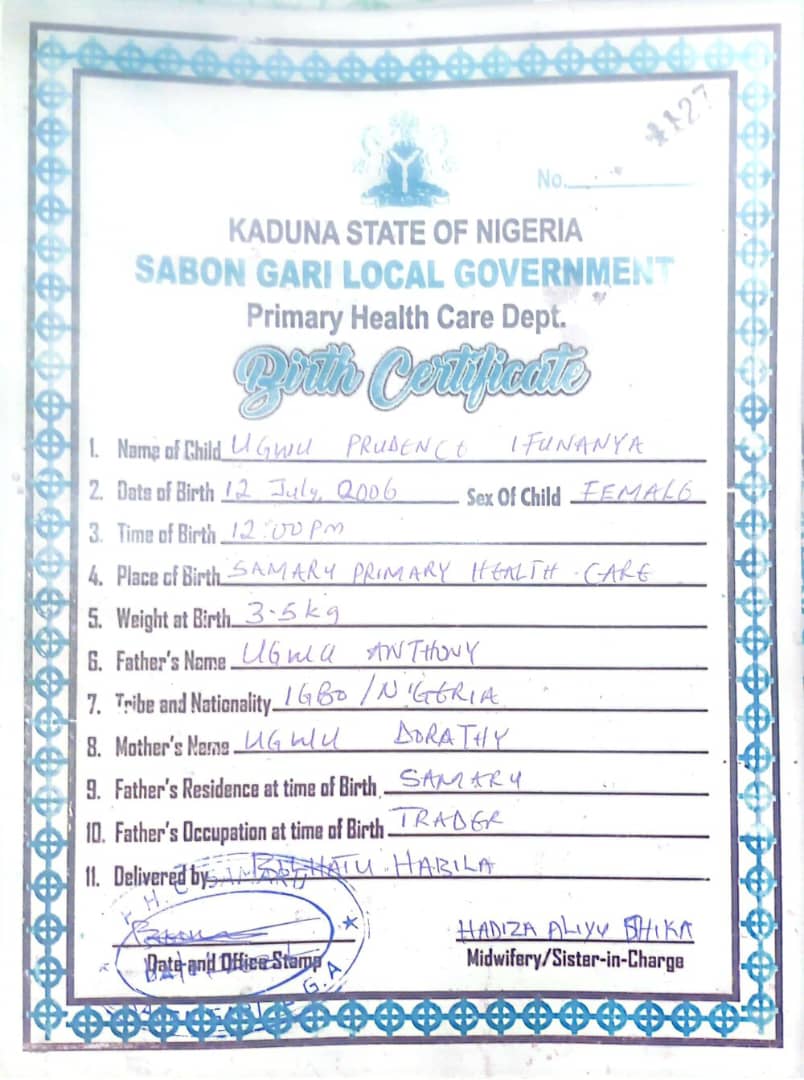 1127
No.
KADUNA STATE OF NIGERIA
SABON GARI LOCAL GOVERNMENT
Primary Health Care Dept.
Birth Certificate
1. Name of Child UGWU PRUDENCE IFUNANYA
2. Date of Birth 12 July, 2006 Sex Of Child FEMALE
3. Time of Birth 12:00PM
4. Place of Birth SAMARU PRIMARY HEALTH CARE
5. Weight at Birth 3.5kg
6. Father's Name UGWU ANTHONY
7. Tribe and Nationality IGBO/NIGERIA
8. Mother's Name UGWU DORATHY
9. Father's Residence at time of Birth SAMARU
10. Father's Occupation at time of Birth TRADER
11. Delivered by HABILA
P.H.C SAMARU
Date and Office Stamp
G.A
HADIZA ALIYU SHIKA
Midwifery/Sister-in-Charge